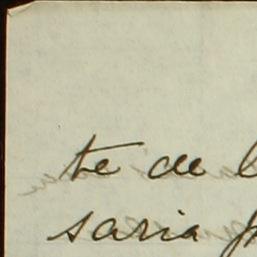 te de
saria